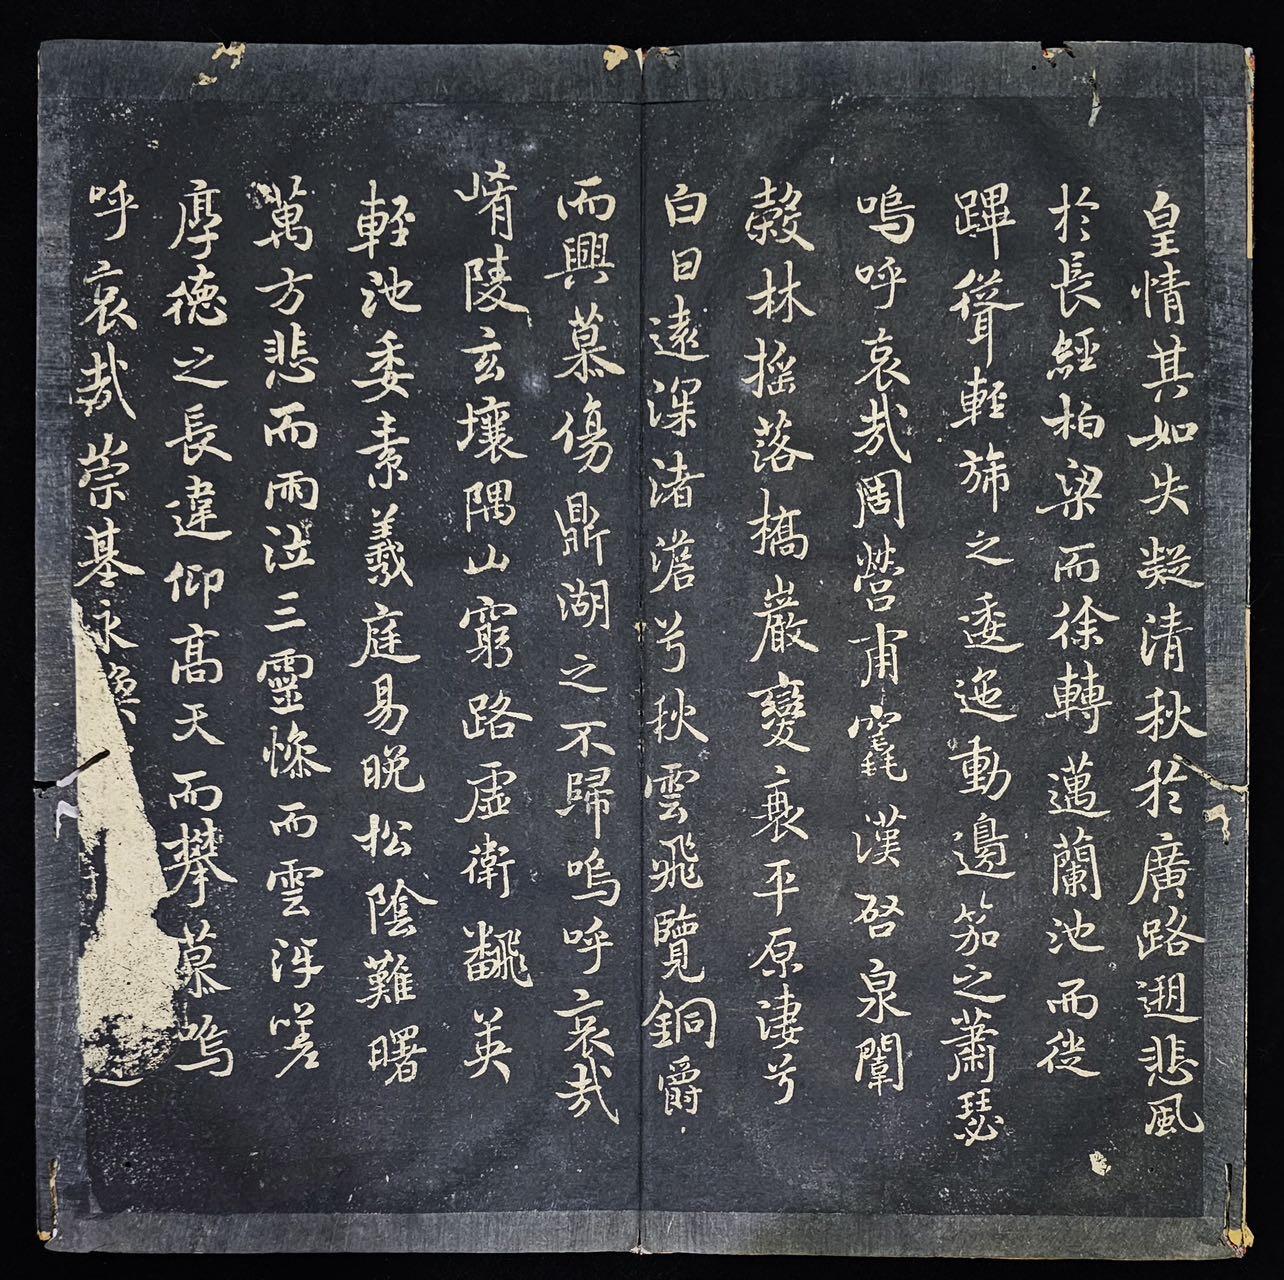 皇情其如失凝清秋於廣路遡悲風
於長經柏梁而徐轉邁蘭池而從
蹕聳輕旆之逶迤動邊笳之蕭瑟
嗚呼哀哉周營甫竁漢啓泉闈
穀林搖落橋巖變衰平原淒兮
白日遠深渚澹兮秋雲飛覽銅爵
而興慕傷鼎湖之不歸嗚呼哀哉
崤陵玄壤隅山窮路虛衛飜英
輕池委素羲庭易晚松陰難曙
萬方悲而雨泣三靈慘而雲沍嗟
厚德之長違仰高天而攀慕嗚
呼哀哉崇基永